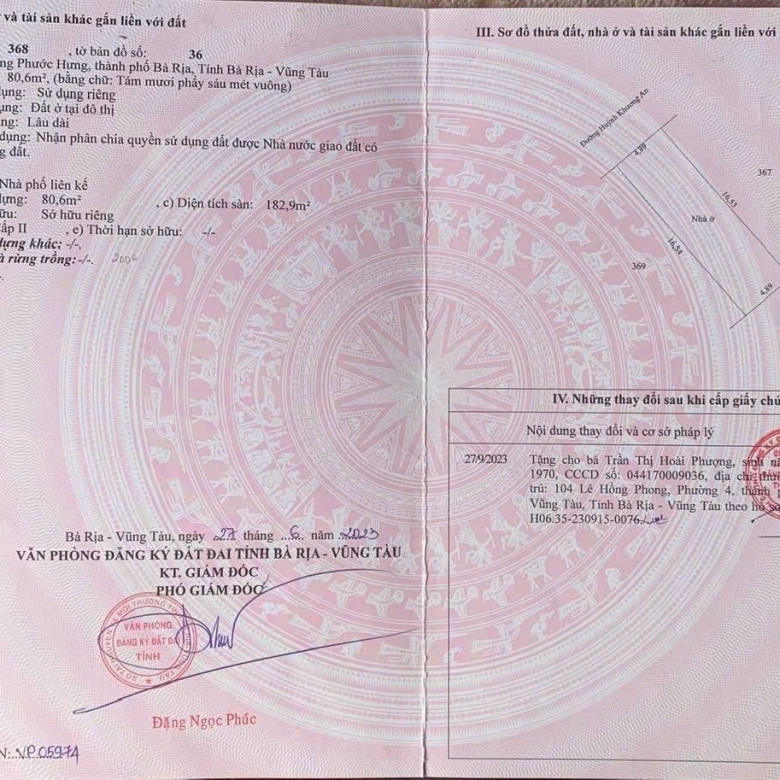 và tài sản khác gắn liền với đất
368 , tờ bản đồ số: 36
Phước Hưng, thành phố Bà Rịa, Tỉnh Bà Rịa - Vũng Tàu
80,6m², (bằng chữ: Tám mươi phẩy sáu mét vuông)
dụng: Sử dụng riêng
Đất ở tại đô thị
Lâu dài
dụng: Nhận phân chia quyền sử dụng đất được Nhà nước giao đất có
đất.
Nhà phố liên kế
80,6m² , c) Diện tích sàn: 182,9m²
Sở hữu riêng
cấp II , e) Thời hạn sở hữu: -/-
dựng khác: -/-.
rừng trồng: -/-.
Bà Rịa - Vũng Tàu, ngày 27 tháng 6 năm 2023
VĂN PHÒNG ĐĂNG KÝ ĐẤT ĐAI TỈNH BÀ RỊA - VŨNG TÀU
KT. GIÁM ĐỐC
PHÓ GIÁM ĐỐC
VĂN PHÒNG
ĐĂNG KÝ ĐẤT ĐAI
TỈNH
Đặng Ngọc Phúc
VP05974
III. Sơ đồ thửa đất, nhà ở và tài sản khác gắn liền với
Đường Huỳnh Khương An
4,89
367
16,53
Nhà ở
16,54
369
4,89
IV. Những thay đổi sau khi cấp giấy chứ
Nội dung thay đổi và cơ sở pháp lý
27/9/2023 Tặng cho bà Trần Thị Hoài Phượng, sinh nă
1970, CCCD số: 044170009036, địa chỉ thườ
trú: 104 Lê Hồng Phong, Phường 4, thành
Vũng Tàu, Tỉnh Bà Rịa - Vũng Tàu theo hồ sơ
H06.35-230915-0076